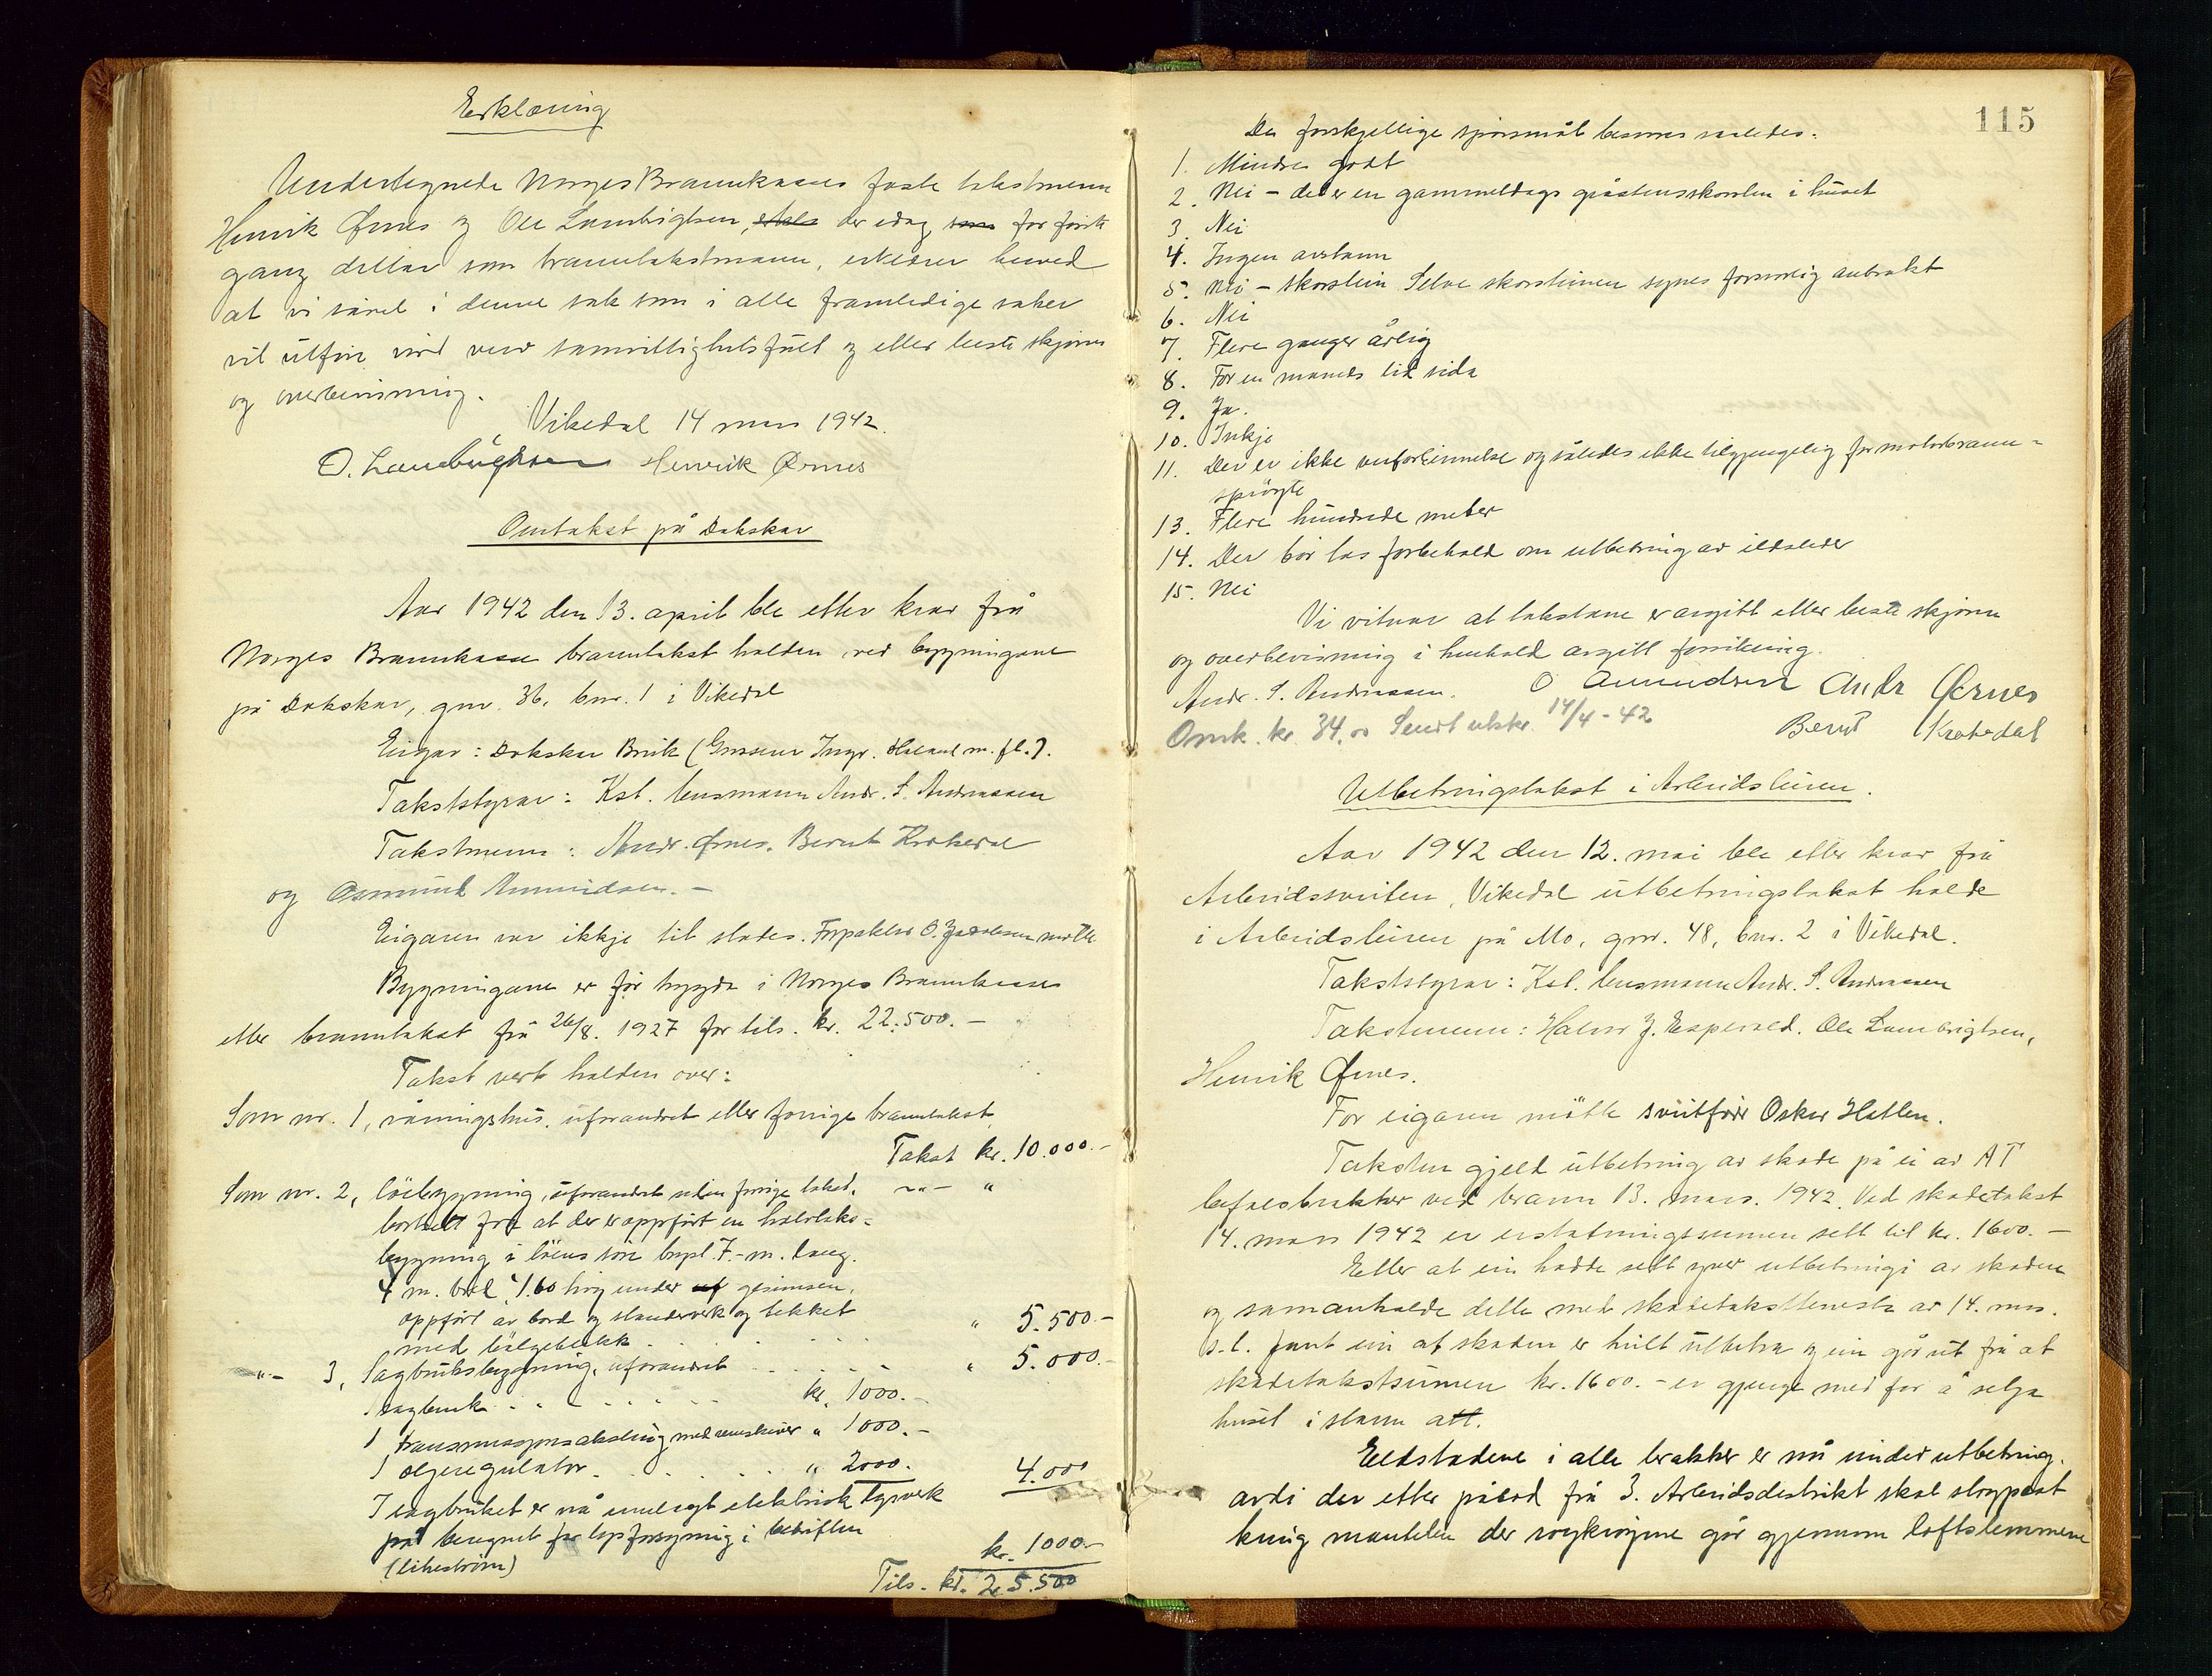 Erklæring
Undertegnede Norges Brannkasses faste takstmenn
Henrik Ørnes og Ole Lambrigtsen, skal der idag som for første
gang deltar som branntakstmann, erklærer herved
at vi såvel i denne sak som i alle framtidige saker
vil utføre vort verv samvittighetsfult og etter beste skjønn
og overbevisning.
Vikedal 14 mars 1942.
O. Lambrigtsen Henrik Ørnes
Omtakst på Dokskar
Aar 1942 den 13. april ble etter krav frå
Norges Brannkasse branntakst halden ved bygningane
på Dokskar, gnr. 36, bnr. 1 i Vikedal
Eigar: Dokskar Bruk (Grosserer Ingv. Haland m. fl.).
Takststyrar: Kst. lensmann Andr. S. Andreassen
Takstmenn: Andr. Ørnes, Berut Krakedal
og Osmund Amundsen. -
Eigaren var ikkje til stades. Forpakter O. Jacobsen møtte
Bygningane er før trygda i Norges Brannkasse
etter branntakst frå 26/8. 1927 for tils. kr. 22.500. -
Takst vert halden over:
Som nr. 1, våningshus, uforandret etter forrige branntakst,
Takst kr. 10.000.-
Som nr. 2, löebygning, uforandret siden forrige takst, -"- "
bortsett fra at der er oppført en halvtaks-
bygning i löens söre 7.- m. lang.
4 m. bred 1.60 høg under uf gesimsen,
oppført av bord og stenderverk og tekket
med bølgeblikk . . . . . " 5.500.-
-"- 3, Sagbruksbygning, uforandret . . . . . " 5.000.-
1 sagbenk . . . . . . kr. 1000.-
1 transmisjonsaksling med remskiver " 1000.-
1 oljeregulator. . . . . . " 2000. 4.000
I sagbruket er nå innlagt elektrisk lysverk
på beregnet for lysforsyning i bedriften
(likestrøm) kr. 1000.-
Tils. kr. 25.500
115
De forskjellige spørsmål besvares saaledes:
1. Mindre godt
2. Nei - det er en gammeldags gråstensskorsten i huset
3. Nei
4. Ingen avstann
5. Nei - skorstein Selve skorsteinen synes forsvarlig anbrakt
6. Nei
7. Flere ganger årlig
8. For en maaneds tid sida
9. Ja.
10. Inkje
11. Der er ikke veiforbinnelse og således ikke tilgjengelig for motorbrann-
sprøyte
13. Flere hundrede meter
14. Der bør tas forbehold om utbetring av ildsteder
15. Nei
Vi vitnar at takstane er avgitt etter beste skjønn
og overbevisning i henhold avgitt forsikring.
Andr. S. Andreassen. O Amundsen Andr Ørnes
Omk. kr. 34.00 Sendt utskr. 14/4-42 Berut Krakedal
Utbetringstakst i Arbeidsleiren.
Aar 1942 den 12. mai ble etter krav frå
Arbeidssveiten, Vikedal utbetringstakst halde
i Arbeidsleiren på Mo, gnr. 48, bnr. 2 i Vikedal.
Takststyrar: Kst. lensmann Andr. S. Andreassen
Takstmenn: Halvor J. Espevold, Ole Lambrigtsen,
Henrik Ørnes.
For eigaren møtte sveitförer Oskar Hatlen.
Taksten gjeld utbetring av skade på ei av AT
befalsbrakker ved brann 13. mars. 1942. Ved skadetakst
14. mars 1942 er erstatningssummen sett til kr. 1600. -
Etter at ein hadde sett yver utbetringi av skaden
og samanhalde dette med skadetakst av 14. mars
s.l. fant ein at skaden er heilt utbetra og ein går ut frå at
skadetakstsumen kr. 1600. - er gjenge med for å setja
huset i stann att.
Eldstadene i alle brakker er nå under utbetring.
avdi der etter påbod frå 3. Arbeidsdistrikt skal støypast
kring mantelen der røykrøyrene går gjennom loftslemmene